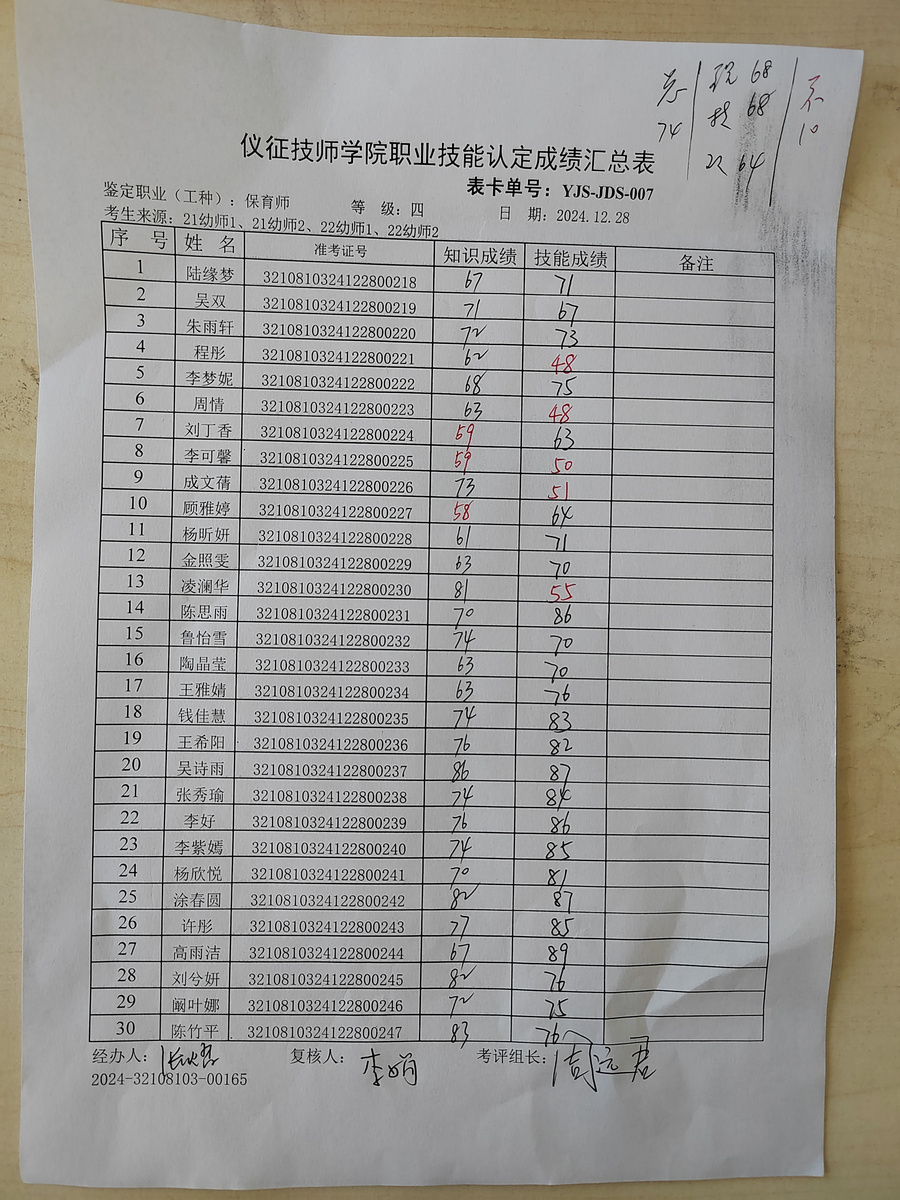 总 现 68 不
74 技 68 10
双 64
仪征技师学院职业技能认定成绩汇总表
表卡单号：YJS-JDS-007
鉴定职业（工种）：保育师 等 级：四 日 期：2024.12.28
考生来源：21幼师1、21幼师2、22幼师1、22幼师2
序 号 姓 名 准考证号 知识成绩 技能成绩 备注
1 陆缘梦 3210810324122800218 67 71
2 吴双 3210810324122800219 71 67
3 朱雨轩 3210810324122800220 72 73
4 程彤 3210810324122800221 62 48
5 李梦妮 3210810324122800222 68 75
6 周情 3210810324122800223 63 48
7 刘丁香 3210810324122800224 59 63
8 李可馨 3210810324122800225 59 50
9 成文蒨 3210810324122800226 73 51
10 顾雅婷 3210810324122800227 58 64
11 杨昕妍 3210810324122800228 61 71
12 金照雯 3210810324122800229 63 70
13 凌澜华 3210810324122800230 81 55
14 陈思雨 3210810324122800231 70 86
15 鲁怡雪 3210810324122800232 74 70
16 陶晶莹 3210810324122800233 63 70
17 王雅婧 3210810324122800234 63 76
18 钱佳慧 3210810324122800235 74 83
19 王希阳 3210810324122800236 76 82
20 吴诗雨 3210810324122800237 86 87
21 张秀瑜 3210810324122800238 74 84
22 李好 3210810324122800239 76 86
23 李紫嫣 3210810324122800240 74 85
24 杨欣悦 3210810324122800241 70 81
25 涂春圆 3210810324122800242 82 87
26 许彤 3210810324122800243 77 85
27 高雨洁 3210810324122800244 67 89
28 刘兮妍 3210810324122800245 82 76
29 阚叶娜 3210810324122800246 72 75
30 陈竹平 3210810324122800247 83 76
经办人： 复核人：李娟 考评组长：周远君
2024-32108103-00165